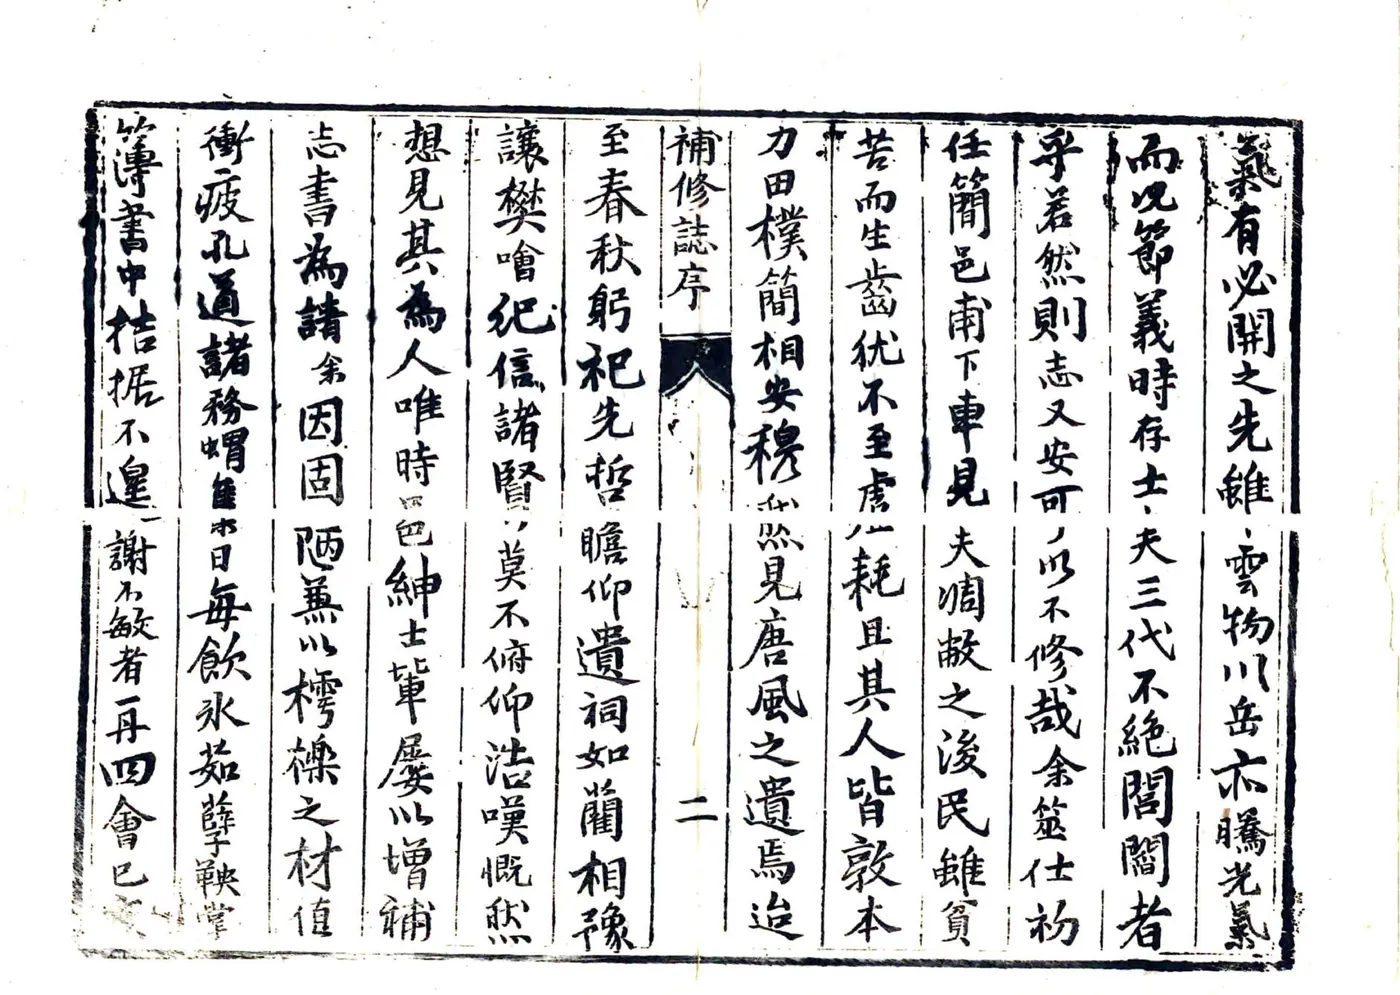 氣有必開之先雖、雲物川岳亦騰光氣
而况節義時存士、夫三代不絕閭閻者
乎若然則志又安可以不修哉余筮仕初
任簡邑甫下車見夫凋敝之後民雖貧
苦而生齒犹不至虛耗且其人皆敦本
力田樸簡相安穆然見唐風之遺焉迨
補修誌序
二
至春秋躬祀先哲瞻仰遺祠如藺相豫
讓樊噲紀信諸賢莫不俯仰浩嘆慨然
想見其為人唯時邑紳士輩屡以增補
志書為請余因固陋蕪以樗櫟之材值
衝疲孔道諸務蝟集日每飲氷茹孽鞅掌
簿書中拮据不遑謝不敏者再四會巳